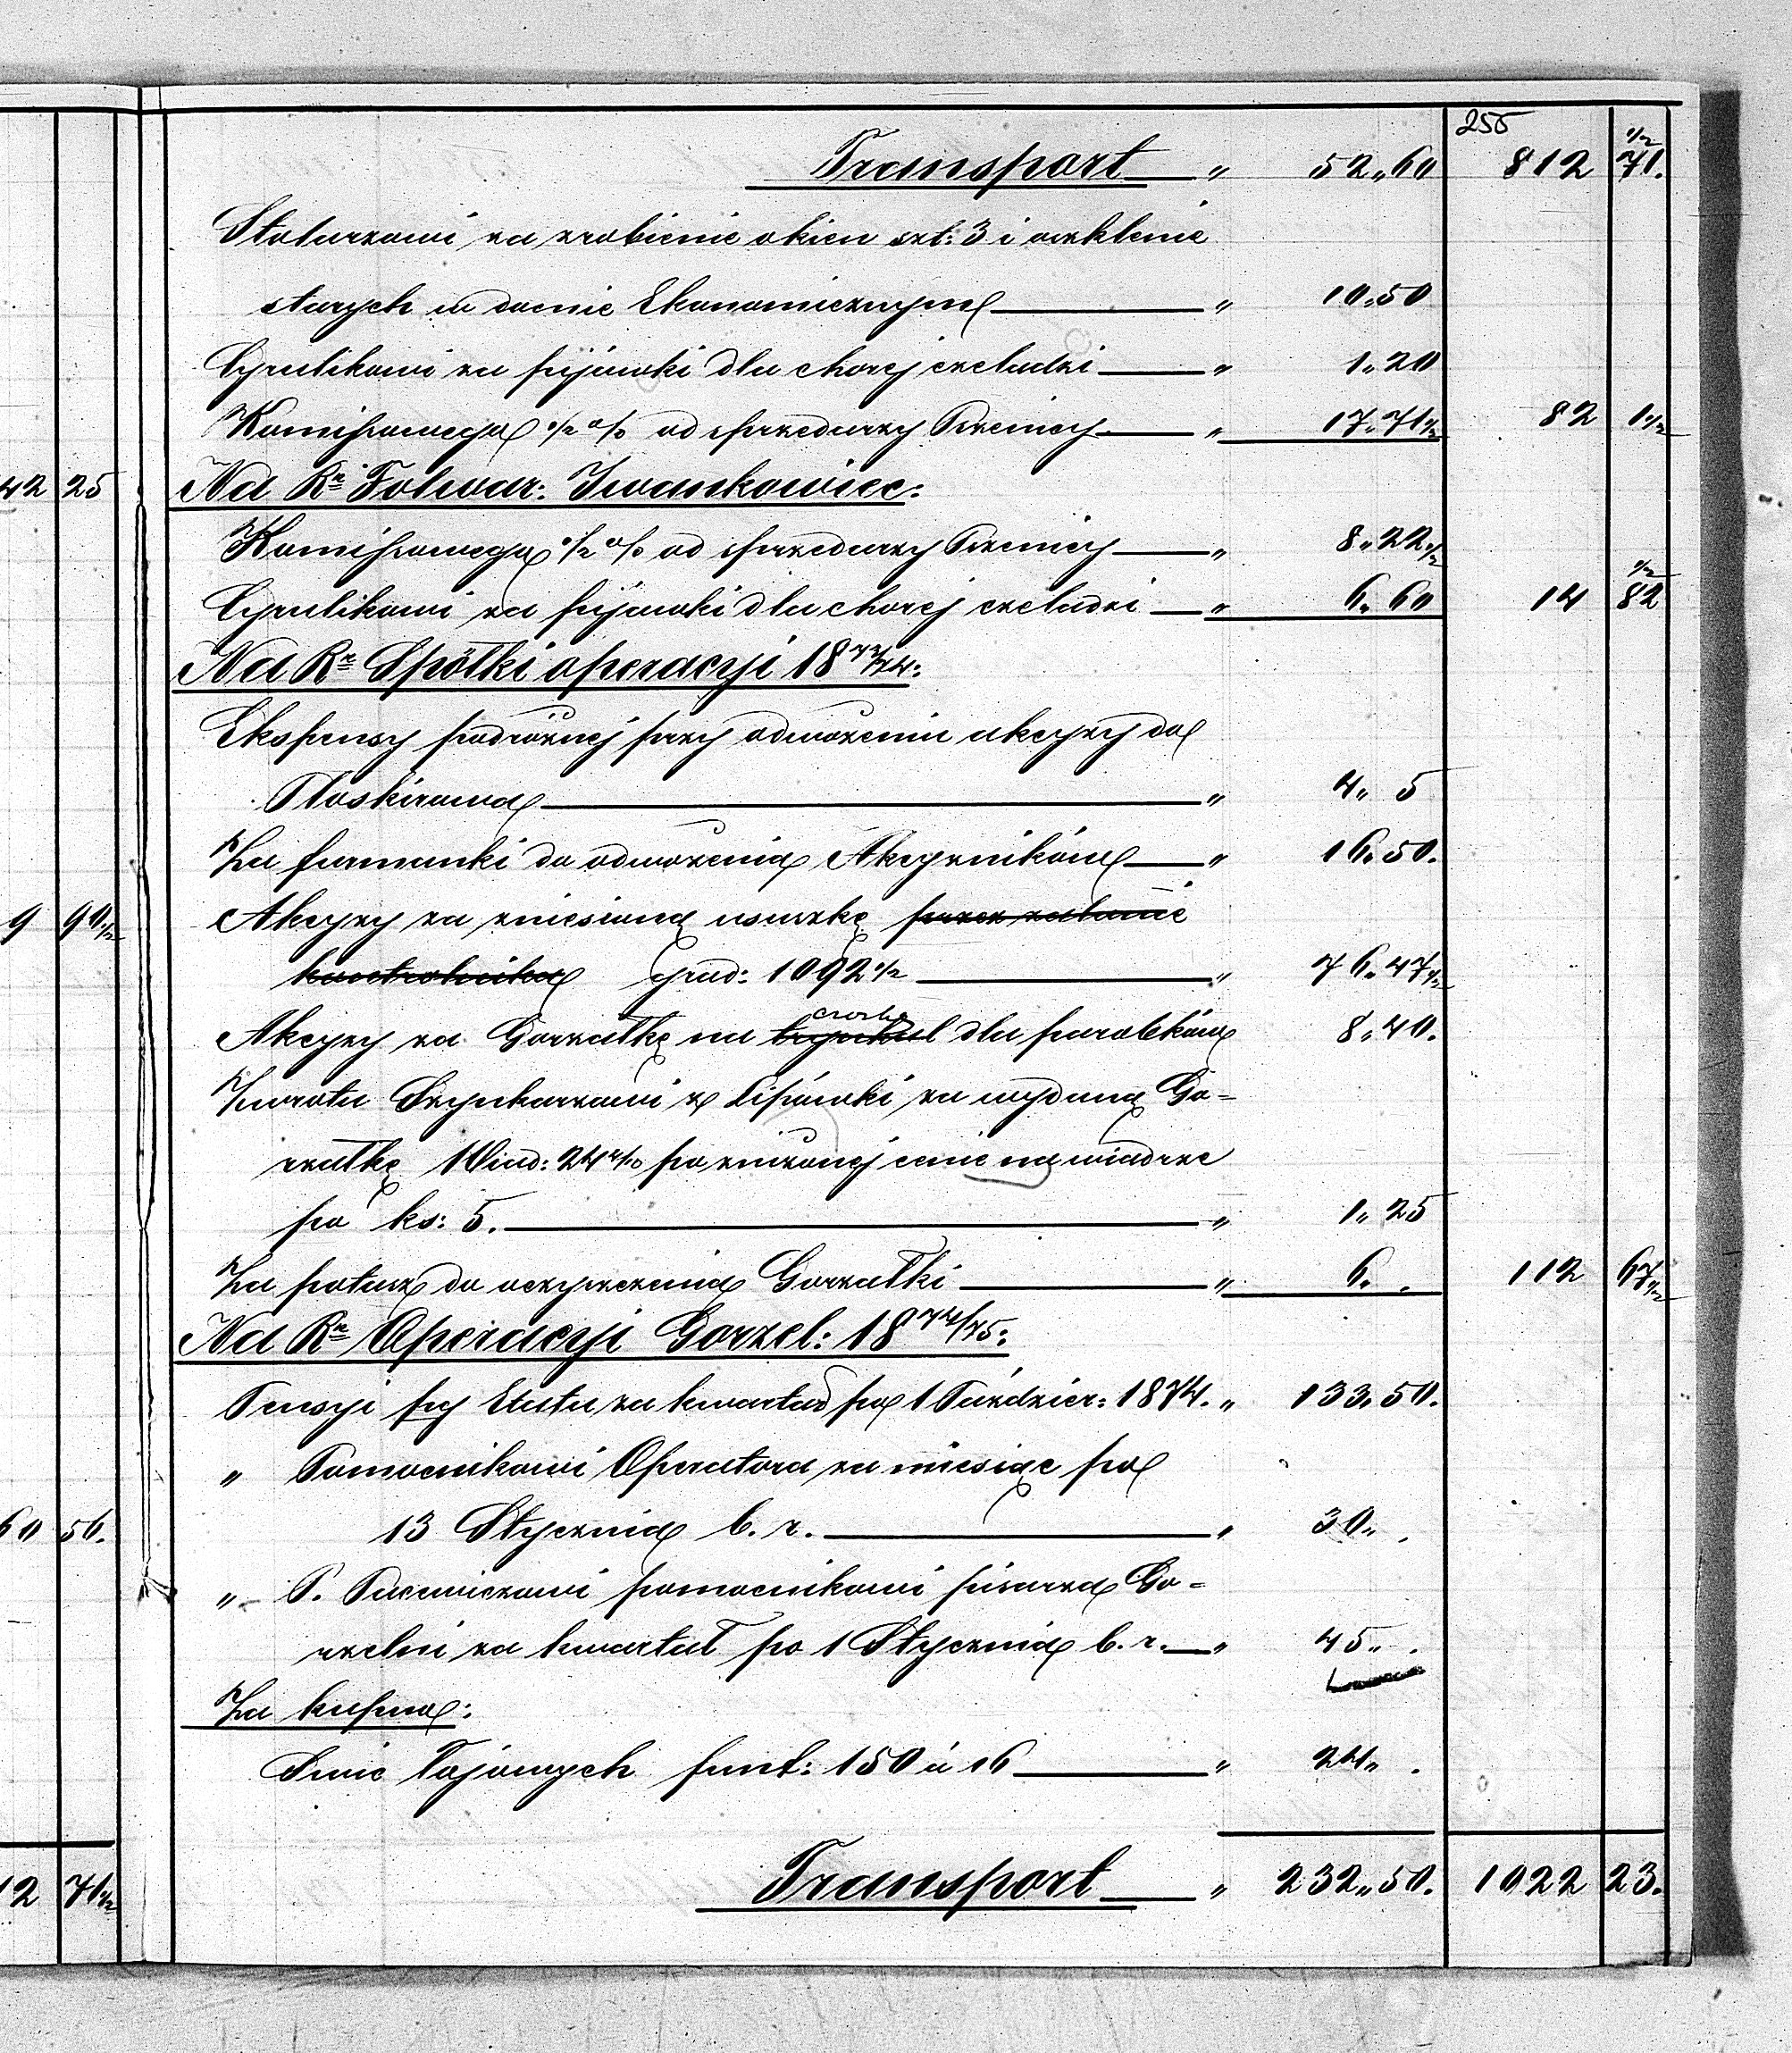 255
Transport „ 52„60 812 71.½
Stolarzowi za zrobienie okien szt: 3 i oszklenie
starych w domie Ekonomicznym „ 10„50
Cyrulikowi za pijawki dla chorej czeladzi „ 1„20
Komisowego ½ % od sprzedarzy Pszenicy „ 17„71½ 82 1½
42 25 Na Rk Folwar: Iwankowiec:
Komisowego ½ % od sprzedarzy Pszenicy „ 8„22½
Cyrulikowi za pijawki dla chorej czeladzi „ 6„60 14 82½
Na Rk Spółki operacyi 18 73/74:
Ekspensy podróżnej przy odwożeniu akcyzy do
Płoskirowa „ 4„ 5
Za furmanki do odwożenia Akcyzników „ 16„50.
9 90½ Akcyzy za zniesioną ususzkę przez zdanie
kontrolnika grad: 1092½ „ 76„47½
Akcyzy za Gorzałkę na dla parobków 8„40.
Zwrotu Szynkarzowi z Lipówki za wydaną Go=
rzałkę Wiad: 24 po zniżonej cenie na wiadrze
po ks: 5. „ 1„25
Za potasz do oczyszczenia Gorzałki „ 6„ . 112 67½
Na Rk Operacyi Gorzel: 18 74/75:
Pensyi pg Etatu za kwartał po 1 Paździer: 1874. „ 133„50.
„ Pomocnikowi Operatora za miesiąc po
60 56. 13 Stycznia b. r. „ 30„ .
„ P. pomocnikowi pisarza Go=
rzelni za kwartał po 1 Stycznia b. r. „ 45„ .
Za kupno:
Świc łojowych funt: 150 á 16 „ 24„ .
12 71½ Transport „ 232„50. 1022 23.